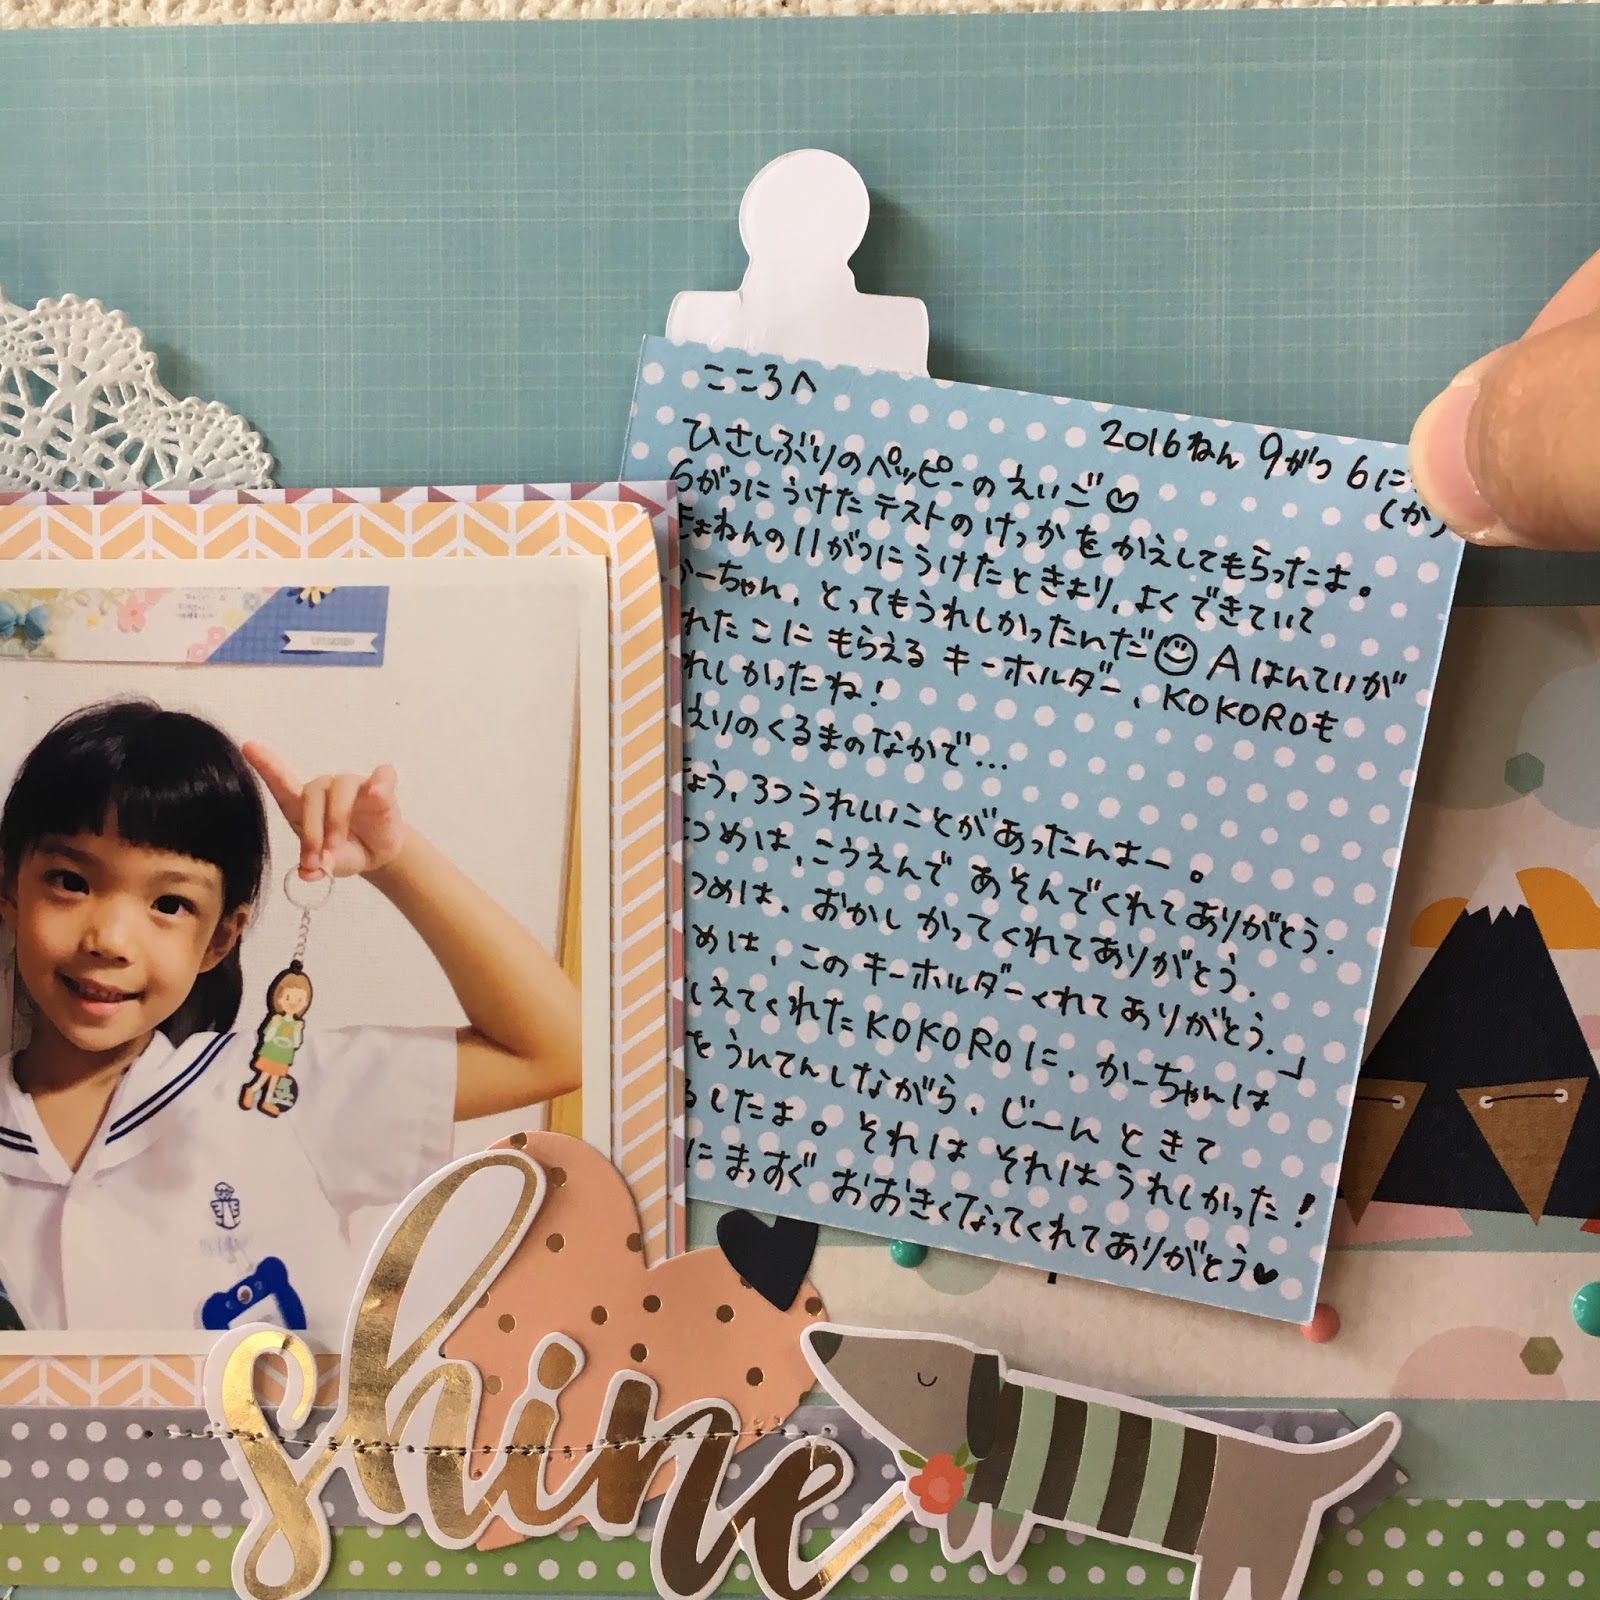 こころへ
2016ねん 9がつ 6に
(か)
ひさしぶりのペッピーのえいご♡
6がつにうけたテストのけっかをかえしてもらったよ。
きょねんの11がつにうけたときより、よくできていて
かーちゃん、とってもうれしかったんだ☺ Aはんていが
れたこにもらえるキーホルダー、KOKOROも
れしかったね!
えりのくるまのなかで…
ょう、3つうれしいことがあったんよー。
つめは、こうえんであそんでくれてありがとう。
つめは、おかしかってくれてありがとう。
めは、このキーホルダーくれてありがとう。」
えてくれたKOKOROに、かーちゃんは
をうんてんしながら、じーんときて
したよ。それはそれはうれしかった!
にまっすぐおおきくなってくれてありがとう♥
shine